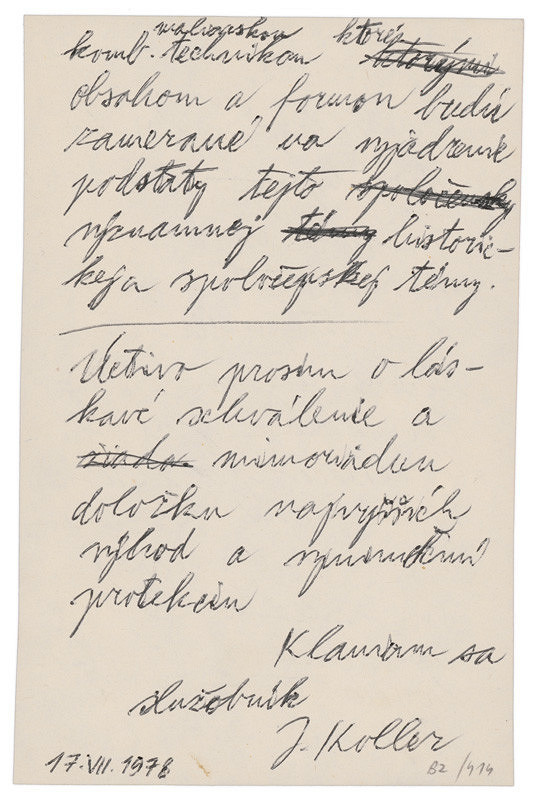 maliarskou ktoré
komb. technikou ktorými
obsahom a formou budú
zamerané na vyjadrenie
podstaty tejto spoločensky
významnej témy historic-
kej a spoločenskej témy.
Uctivo prosím o lás-
kavé schválenie a
žiada mimoriadnu
doložku najvyšších
výhod a
protekciu
Klaniam sa
služobník
J. Koller
17.VII.1978 B2/414